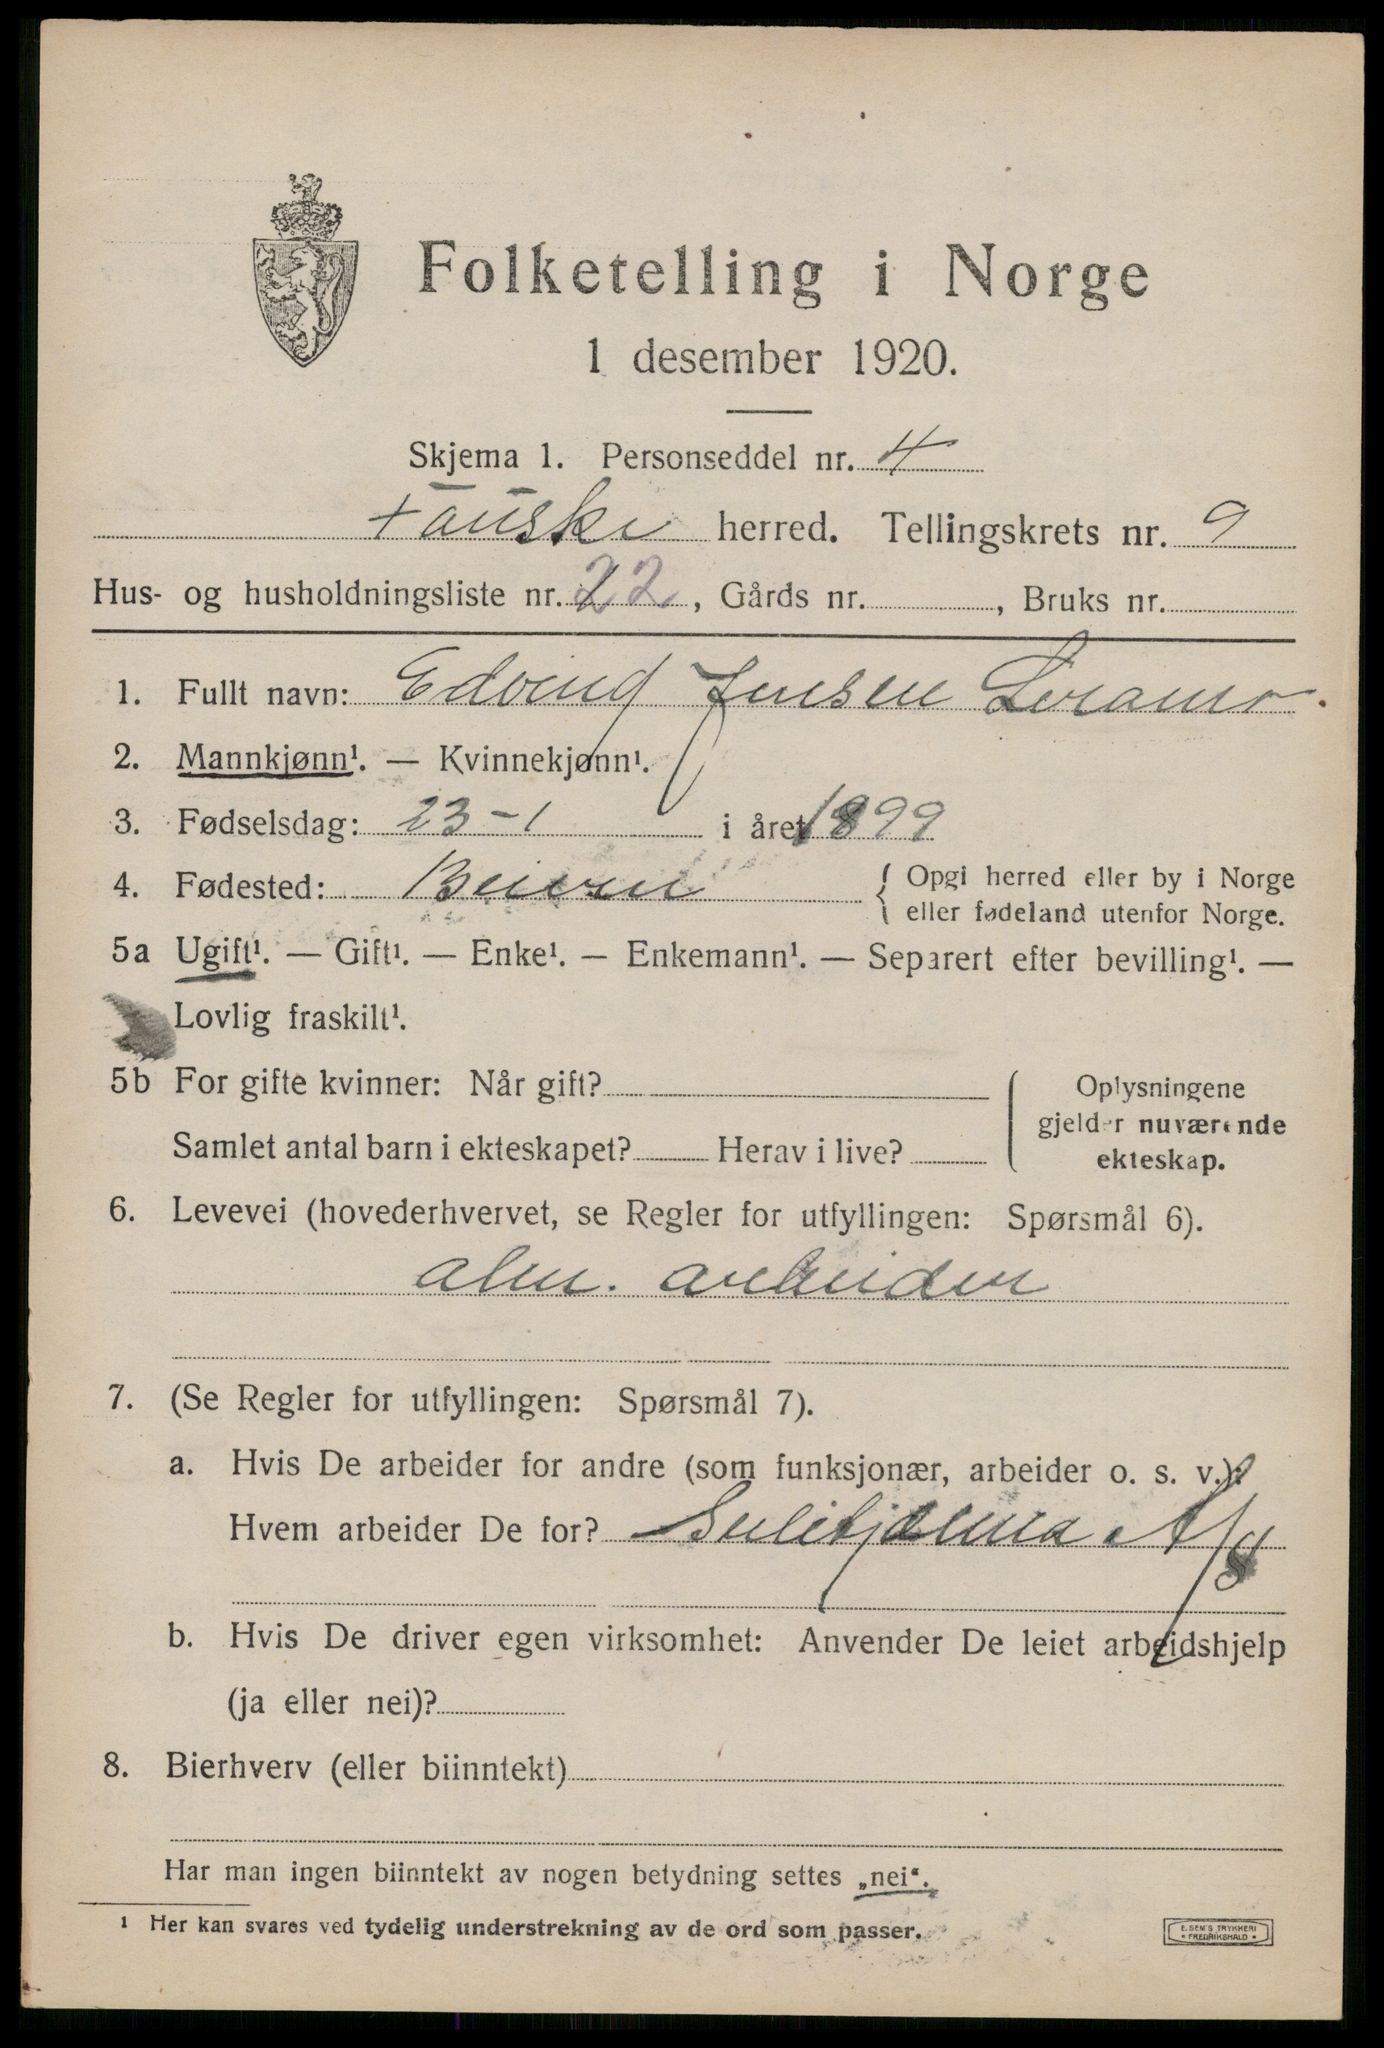 Folketelling i Norge
1 desember 1920.
Skjema 1. Personseddel nr. 4
Fauske herred. Tellingskrets nr. 9
Hus- og husholdningsliste nr. 22, Gårds nr. , Bruks nr.
1. Fullt navn: Edving Jensen
2. Mannkjønn¹. — Kvinnekjønn¹.
3. Fødselsdag: 23-1 i året 1899
4. Fødested: Beiern { Opgi herred eller by i Norge
eller fødeland utenfor Norge.
5a Ugift¹. — Gift¹. — Enke¹. — Enkemann¹. — Separert efter bevilling¹. —
Lovlig fraskilt¹.
5b For gifte kvinner: Når gift?
Samlet antal barn i ekteskapet? Herav i live?
Oplysningene
gjelder nuværende
ekteskap.
6. Levevei (hovederhvervet, se Regler for utfyllingen: Spørsmål 6).
alm. arbeider
7. (Se Regler for utfyllingen: Spørsmål 7).
a. Hvis De arbeider for andre (som funksjonær, arbeider o. s. v.):
Hvem arbeider De for? Sulitjelma A/S
b. Hvis De driver egen virksomhet: Anvender De leiet arbeidshjelp
(ja eller nei)?
8. Bierhverv (eller biinntekt)
Har man ingen biinntekt av nogen betydning settes „nei“.
¹ Her kan svares ved tydelig understrekning av de ord som passer.
E. SEM'S TRYKKERI
* FREDRIKSHALD *